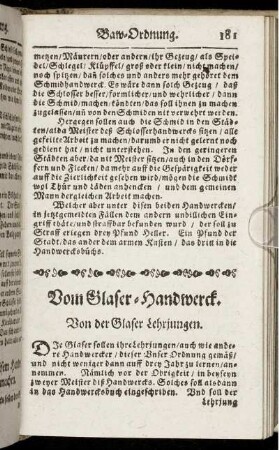 Baw-Ordnung. 181
metzen/Mäurern/oder andern/ihr Gezeug/ als Spei-
del/Schlegel/Klüpffel/groß oder klein/nicht machen/
noch spitzen/dañ solches und anders mehr gehöret dem
Schmidhandwerck. Es wäre dann solch Gezeug / daß
die Schlosser besser/förmlicher/und wehrlicher / dann
die Schmid/machen/köndten/das soll ihnen zu machen
zugelassen/uñ von den Schmiden nit verwehrt werden.
Hergegen sollen auch die Schmid in den Städ-
ten/alda Meister deß Schlosserhandwercks sitzen / alle
gefeilte Arbeit zu machen/darumber nicht gelernt noch
gedient hat / nicht understehn. In den geringern
Städten aber/da nit Meister sitzen/auch in den Dörf-
fern und Flecken/da mehr auff die Gespärigkeit weder
auff die Zierlichkeit gesehen wird/mögen die Schmidt
wol Thür und Läden anhencken / und dem gemeinen
Mann dergleichen Arbeit machen.
Welcher aber under disen beiden Handwercken/
in jetztgemeldten Fällen dem andern unbillichen Ein-
griff thäte/und straffbar befunden wurd / der soll zu
Straff erlegen drey Pfund Heller. Ein Pfund der
Stadt/das ander dem armen Kasten / das dritt in die
Handwercksbüchs.
Vom Glaser-Handwerck.
Von der Glaser Lehrjungen.
DJe Glaser sollen ihre Lehrjungen/auch wie ande-
re Handwercker / dieser Unser Ordnung gemäß/
und nicht weniger dann auff drey Jahr zu lernen/an-
nemmen. Nämlich vor der Obrigkeit / in beyseyn
zweyer Meister diß Handwercks. Solches soll alsdann
in das Handwercksbuch eingeschriben. Und soll der
Lehrjung